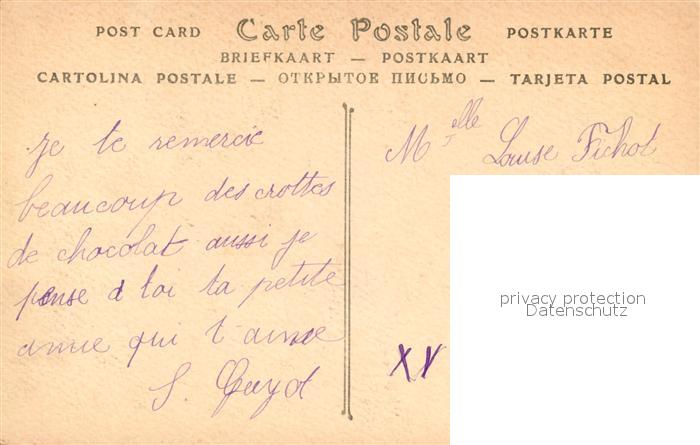 POST CARD Carte Postale POSTKARTE
BRIEFKAART — POSTKAART
CARTOLINA POSTALE — ОТКРЫТОЕ ПИСЬМО — TARJETA POSTAL
Je te remercie
beaucoup des crottes
de chocolat aussi je
pense à toi ta petite
amie qui t'aime
S. Guyot
Melle Louise Fichot
XV
privacy protection
Datenschutz